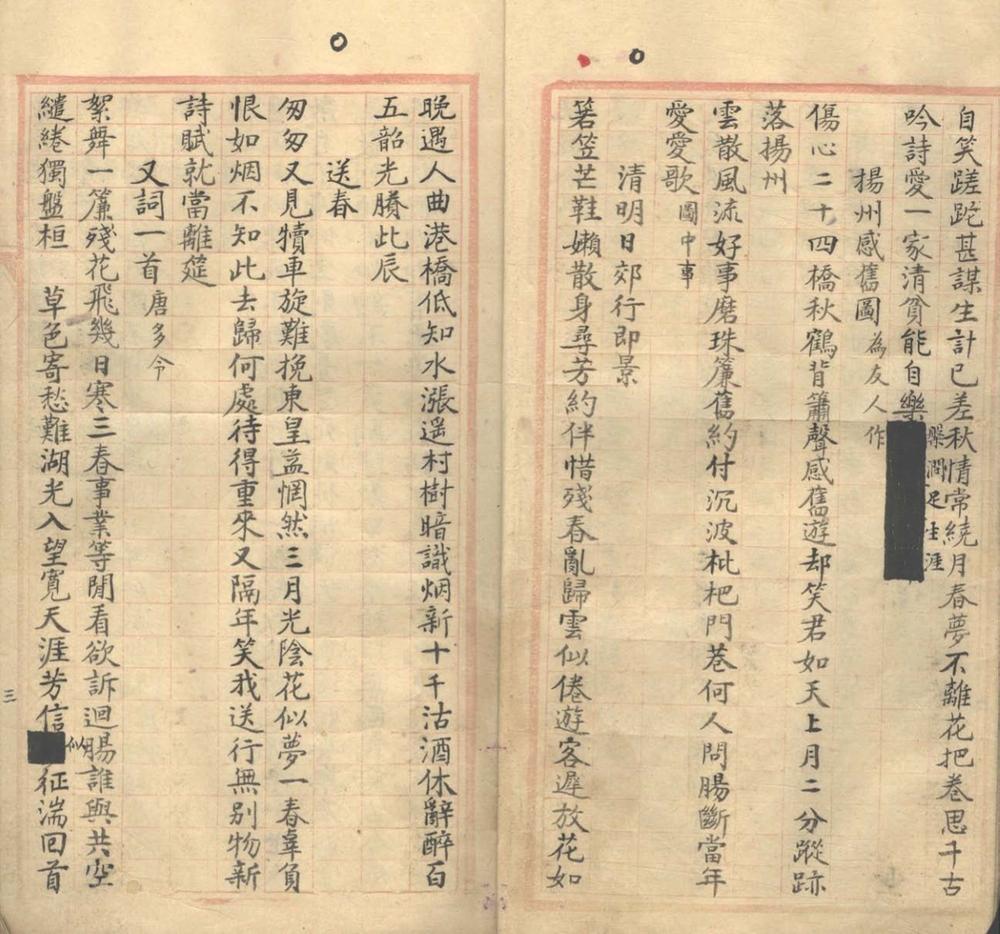 自笑蹉跎甚謀生計已差秋情常繞月春夢不離花把卷思千古
吟詩愛一家清貧能自樂
槃澗足生涯
揚州感舊圖為友人作
傷心二十四橋秋鶴背簫聲感舊遊却笑君如天上月二分蹤跡
落揚州
雲散風流好事磨珠簾舊約付沉波枇杷門巷何人問腸斷當年
愛愛歌圖中事
清明日郊行即景
箬笠芒鞋嬾散身尋芳約伴惜殘春亂歸雲似倦遊客遲放花如
晚遇人曲港橋低知水漲遥村樹暗識烟新十千沽酒休辭醉百
五韶光賸此辰
送春
匆匆又見犢車旋難挽東皇益惘然三月光陰花似夢一春辜負
恨如烟不知此去歸何處待得重來又隔年笑我送行無別物新
詩賦就當離筵
又詞一首唐多令
絮舞一簾殘花飛幾日寒三春事業等閒看欲訴迴腸誰與共空
繾綣獨盤桓 草色寄愁難湖光入望寬天涯芳信似征湍回首
三